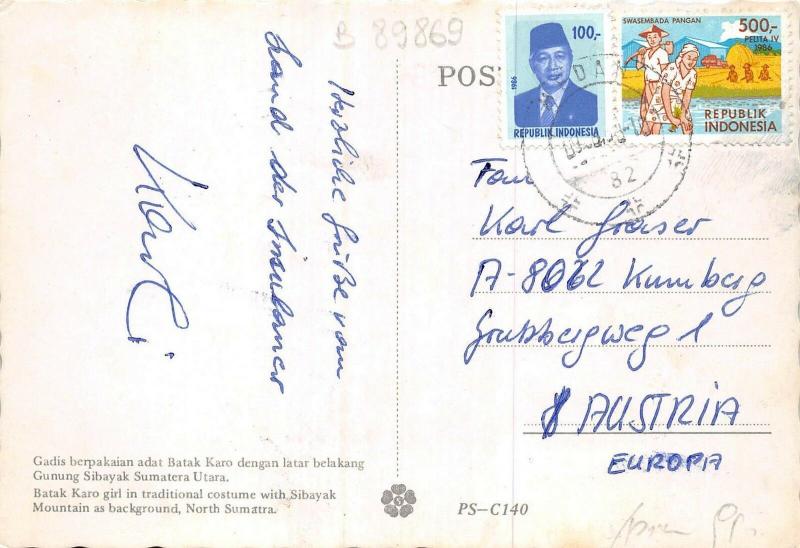 B 89869
Herzliche Grüße vom
Land der Insulaner
Karli
Gadis berpakaian adat Batak Karo dengan latar belakang
Gunung Sibayak Sumatera Utara.
Batak Karo girl in traditional costume with Sibayak
Mountain as background, North Sumatra.
POS
100,-
1986
REPUBLIK INDONESIA
SWASEMBADA PANGAN
500,-
PELITA IV
1986
REPUBLIK
INDONESIA
82
Fam
Karl Graser
A-8062 Kumberg
Grubbergweg 1
AUSTRIA
EUROPA
PS-C140